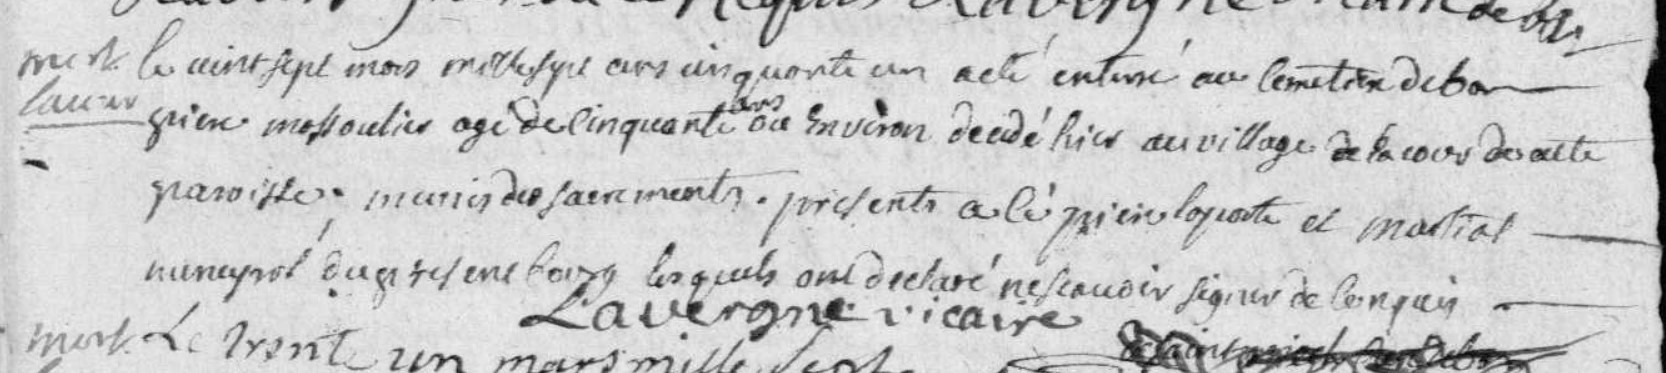 Requis Lavergne vicaire
mort
le vint sept mars mille sept cens cinquante un a eté enterré au Cemetiere de
lacour
pierre massoulier agé de Cinquante ans ou Environ decedé hier au village de lacour de cette
paroisse munis des sacrements. presents a lé pierre laporte et martial
du present bourg lesquels ont declaré ne scavoir signer de Ce requis
Lavergne vicaire
mort Le trente un mars mille sept